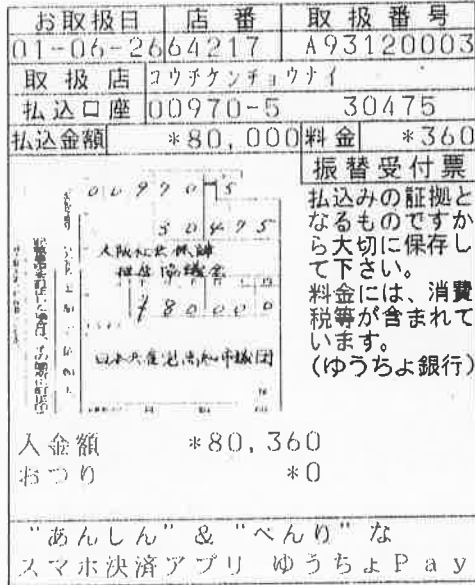 お取扱日 店番 取扱番号
01-06-26 64217 A93120003
取扱店 コウチケンチョウナイ
払込口座 00970-5 30475
払込金額 *80,000 料金 *360
振替受付票
払込みの証拠と
なるものですか
ら大切に保存し
て下さい。
料金には、消費
税等が含まれて
います。
(ゆうちょ銀行)
00970 5
30475
大阪社会保障
推進協議会
¥80000
日本共産党高知市議団
入金額 *80,360
おつり *0
"あんしん"&"べんり"な
スマホ決済アプリ ゆうちょPay